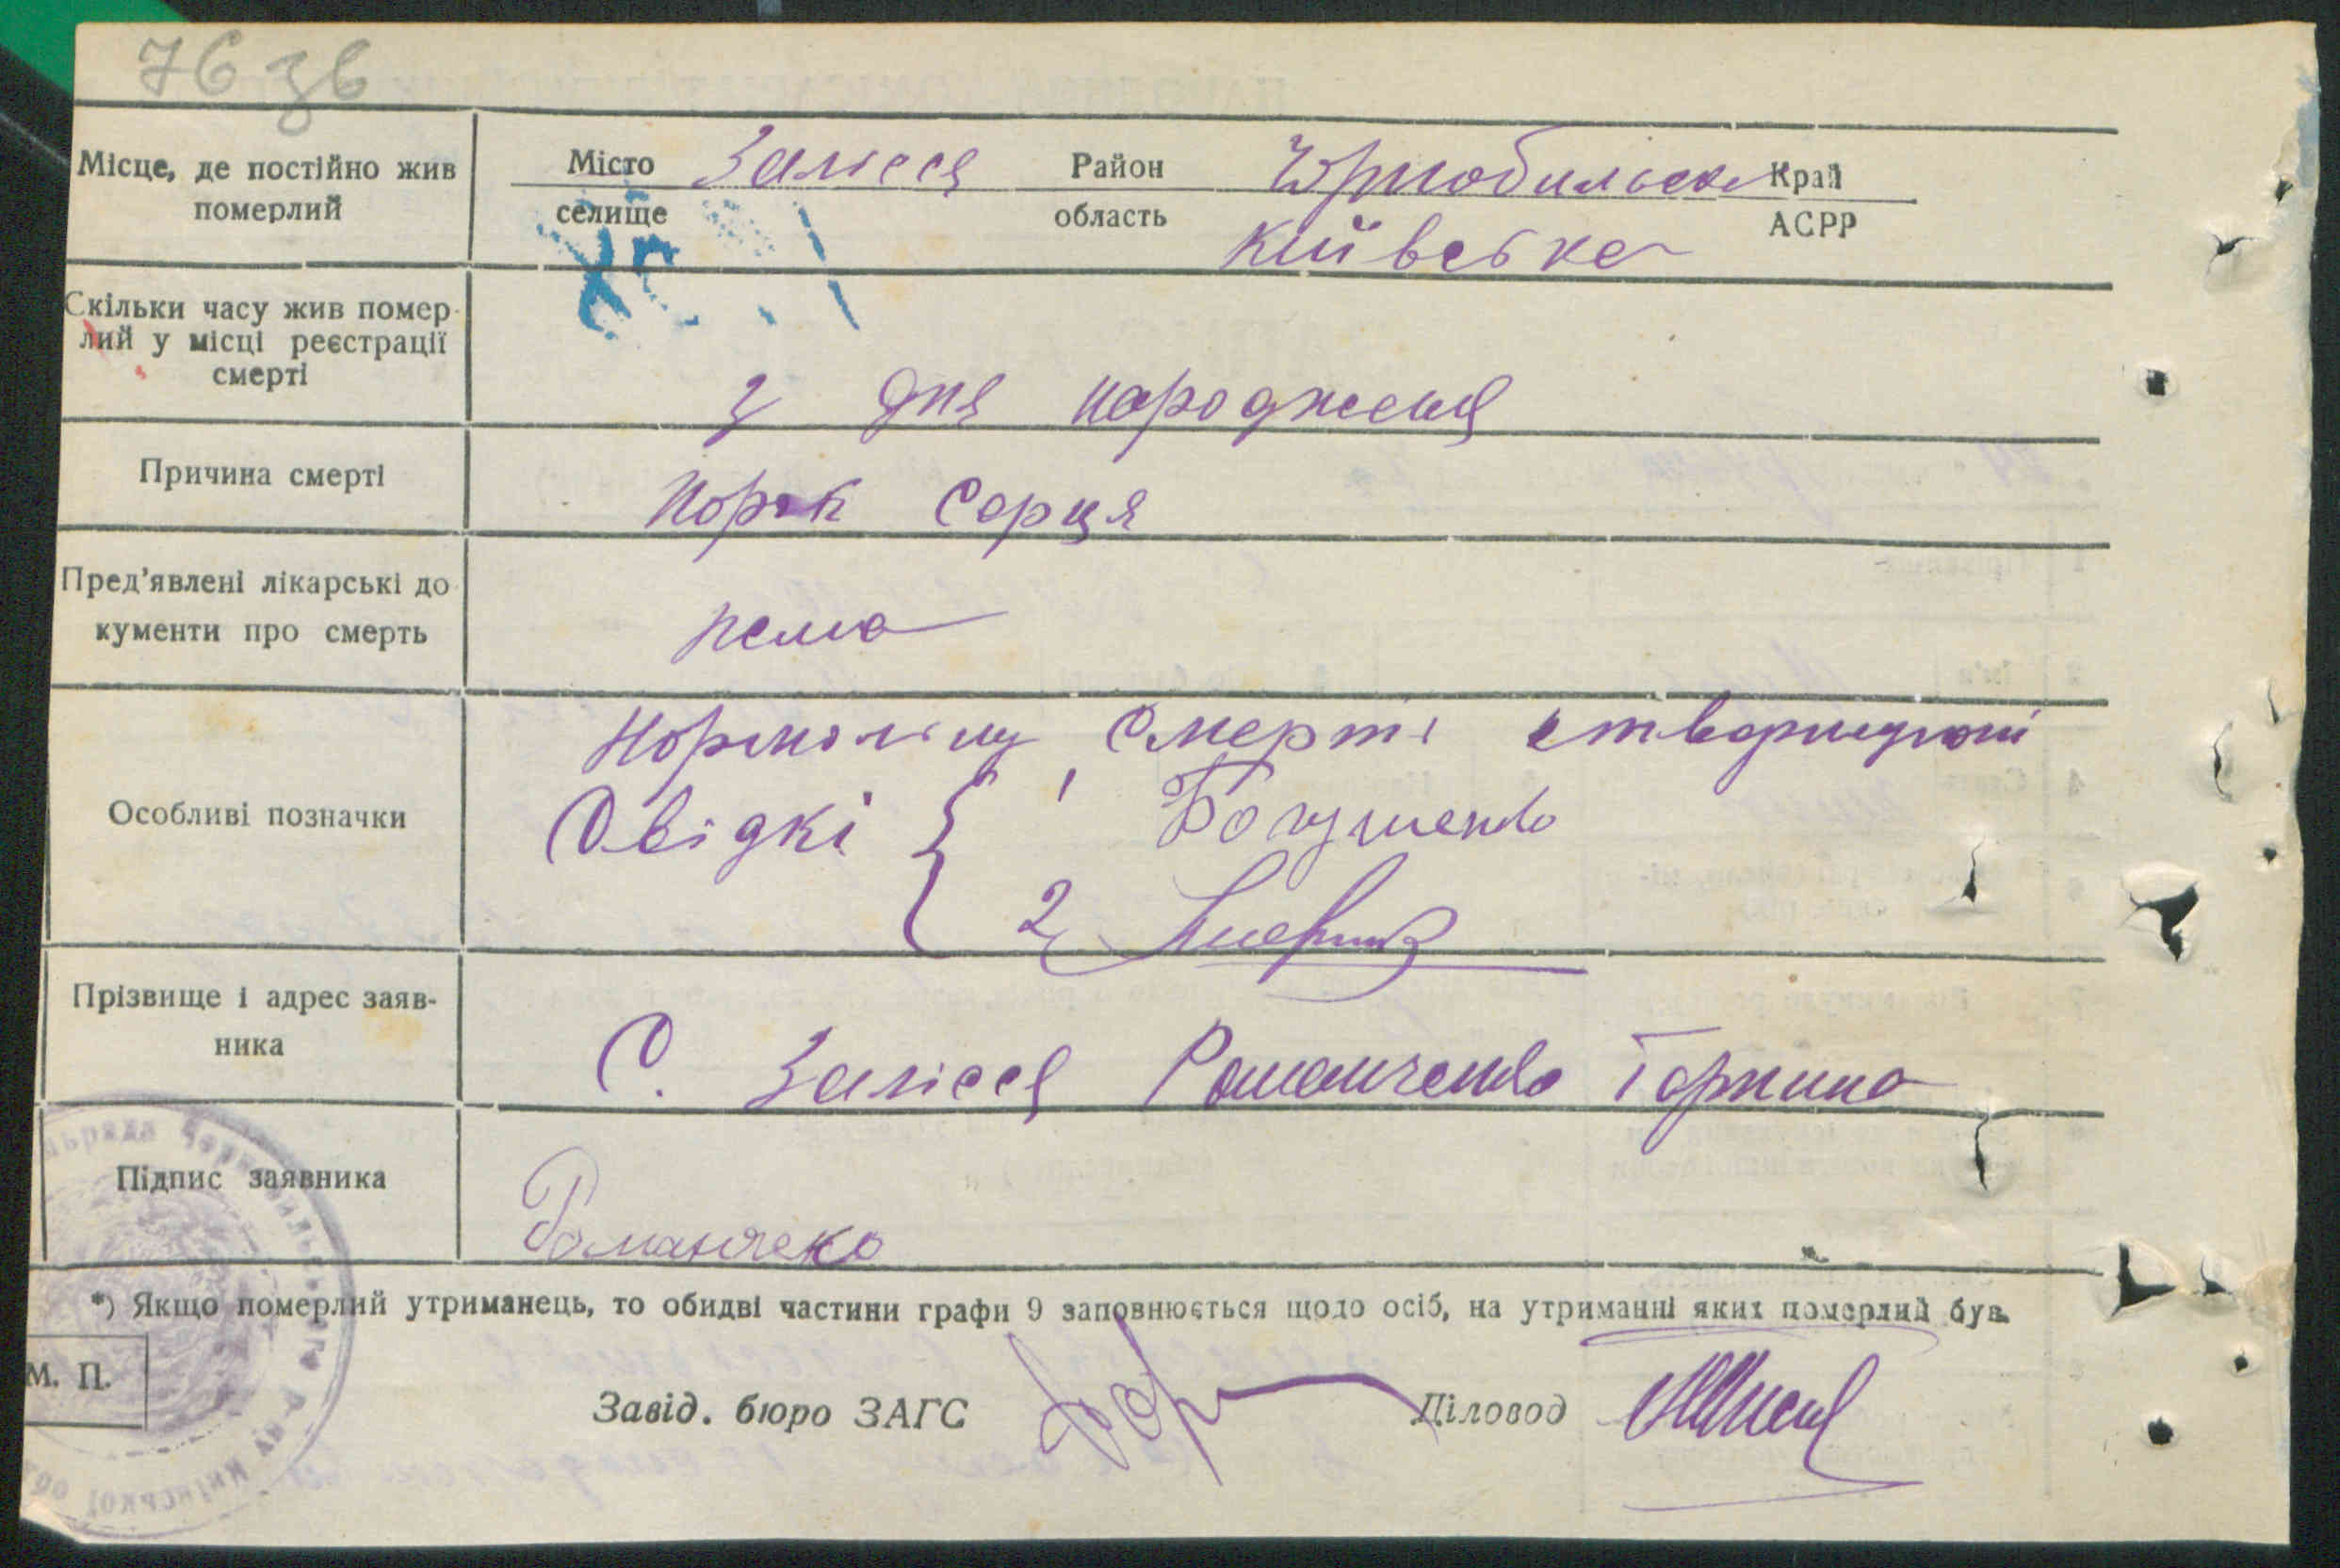 76 зв
Місце, де постійно жив
померлий
Місто Залісся Район Чорнобильська Край
селище область Київська АСРР
Скільки часу жив помер-
лий у місці реєстрації
смерті
з дня народженя
Причина смерті
Порок серця
Пред'явлені лікарські до-
кументи про смерть
нема
Особливі позначки
Нормольну смерть
Свідкі { 1 Богушенко
2
Прізвище і адрес заяв-
ника
С. Залісся Романченко Горпина
Підпис заявника
Романчеко
*) Якщо померлий утриманець, то обидві частини графи 9 заповнюється щодо осіб, на утриманні яких померлий був.
М. П.
Завід. бюро ЗАГС Діловод